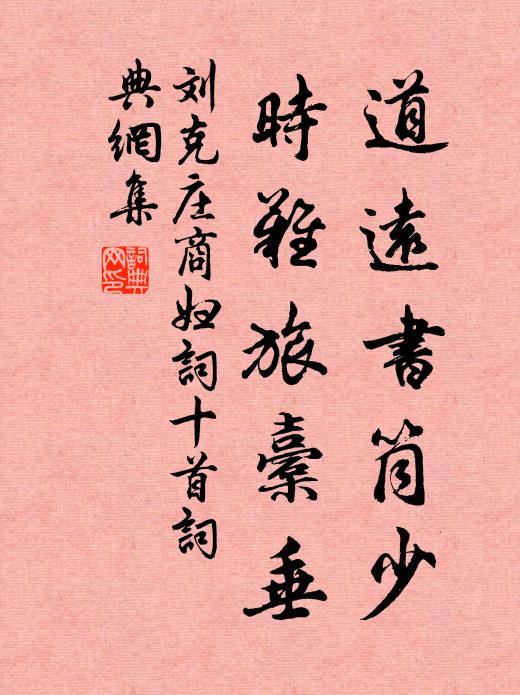 道遠書筒少
時難旅橐垂
刘克庄商妇詞十首詞
典網集
詞典网印